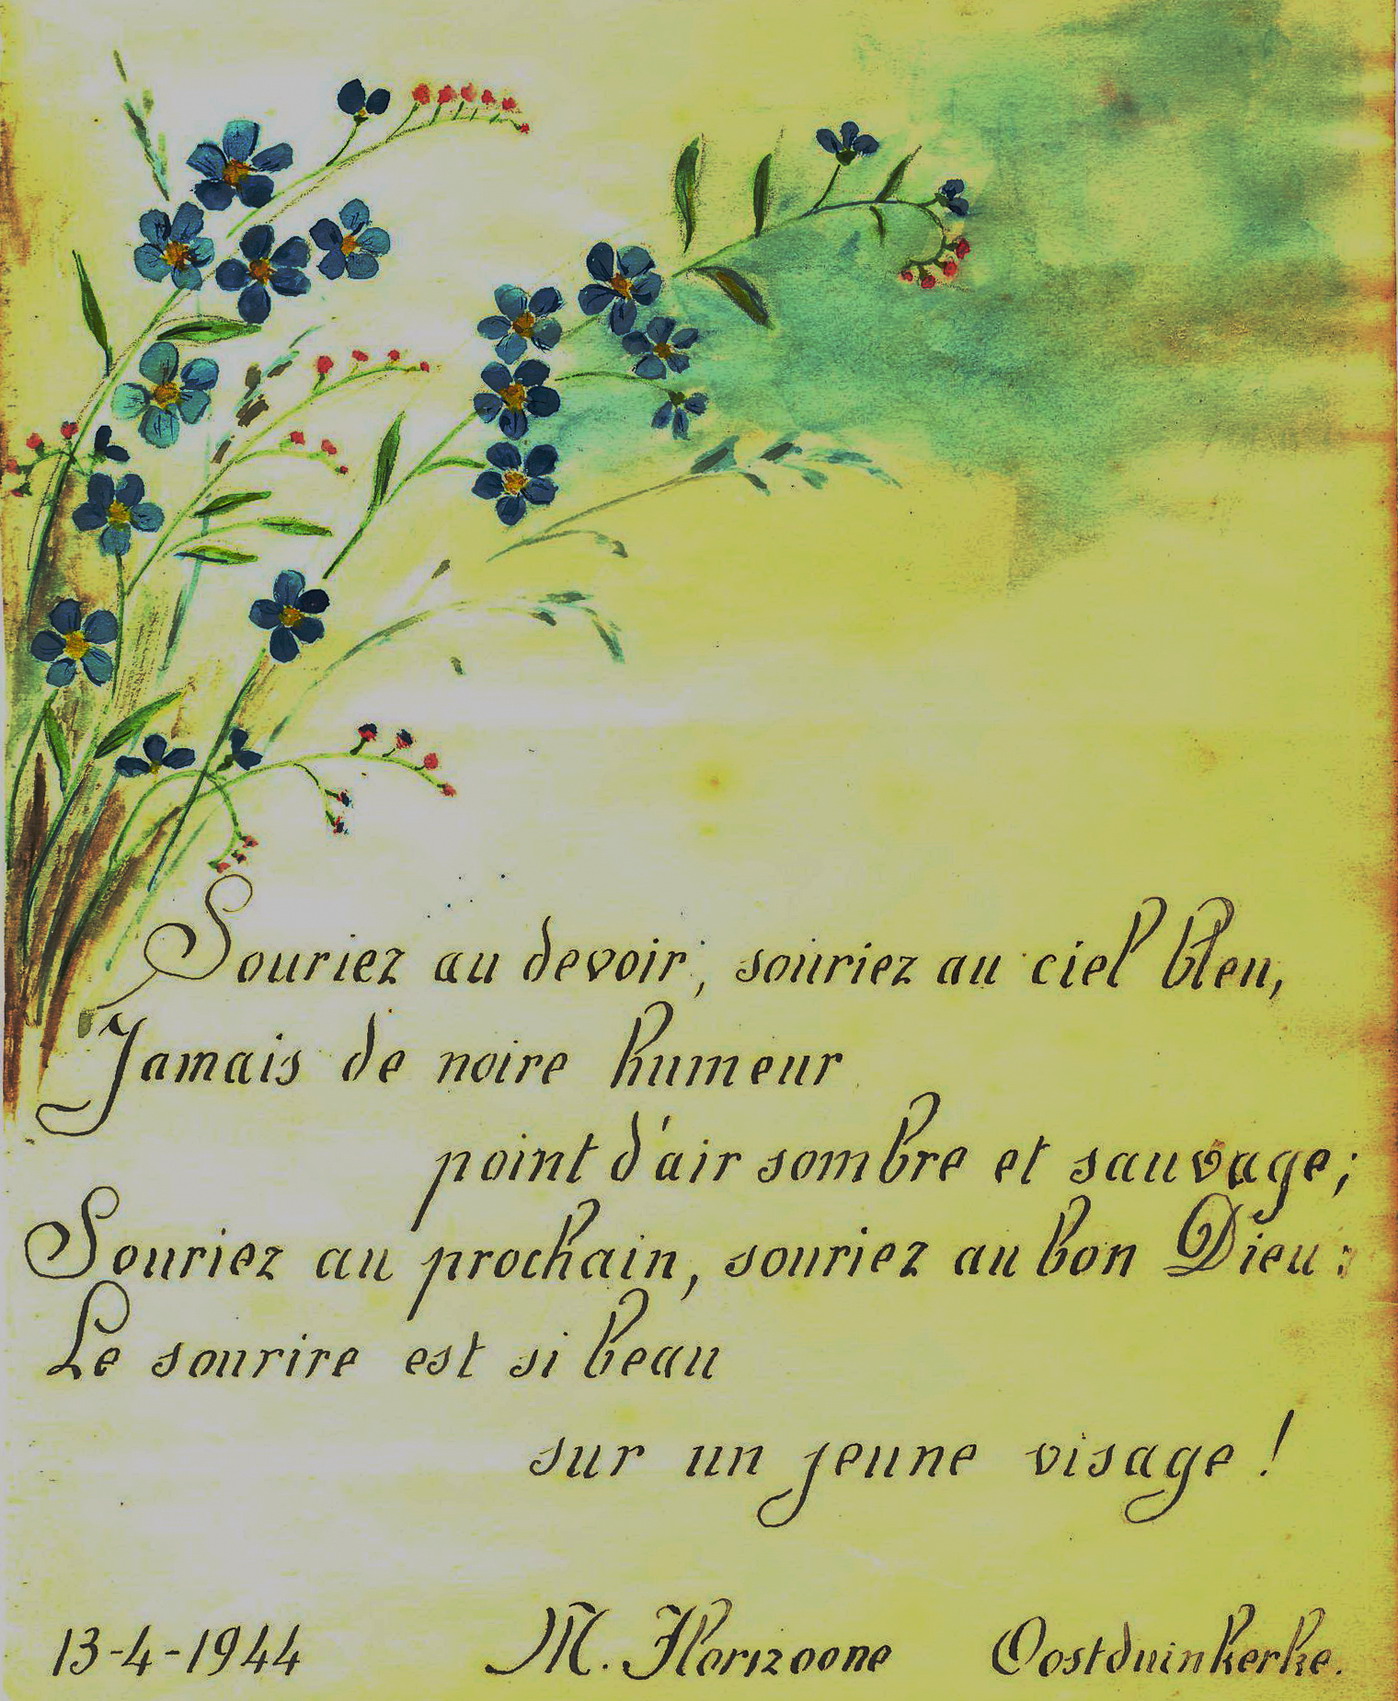 Souriez au devoir, souriez au ciel bleu,
Jamais de noire humeur
point d'air sombre et sauvage;
Souriez au prochain, souriez au bon Dieu:
Le sourire est si beau
sur un jeune visage!
13-4-1944 M. Florizoone Oostduinkerke.